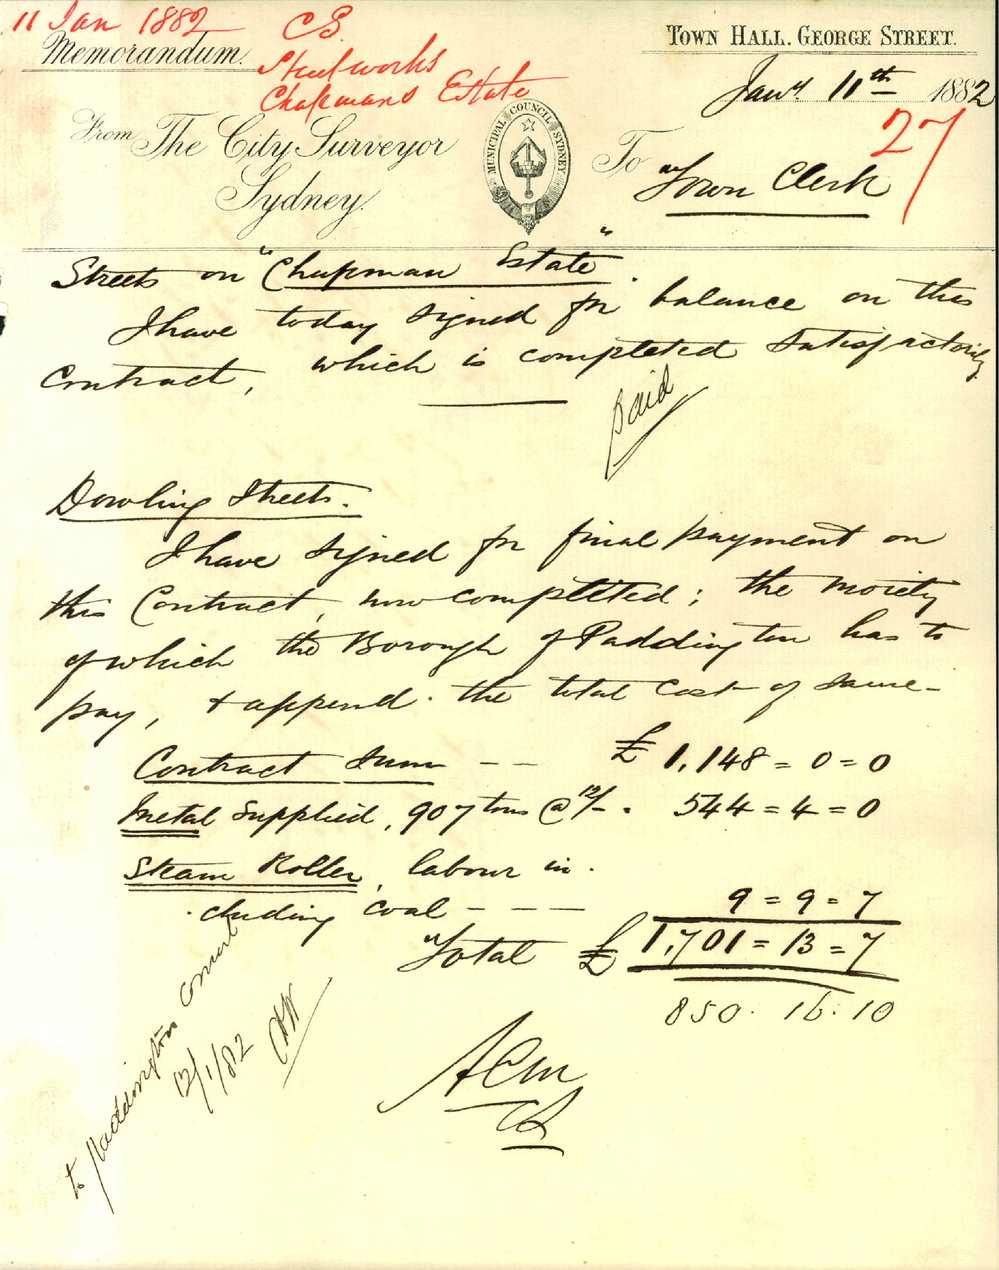 11 Jan 1882
C.S.
Memorandum.
Street works
Chapmans Estate
TOWN HALL. GEORGE STREET.
Jany 11th 1882
27
From The City Surveyor
Sydney.
MUNICIPAL COUNCIL SYDNEY
To Town Clerk
Streets on "Chapman Estate"
I have today signed for balance on this
Contract, which is completed satisfactorily.
paid
Dowling Streets.
I have signed for final payment on
this Contract, now completed; the moiety
of which the Borough of Paddington has to
pay, & append the total cost of same-
Contract Sum -- £1,148=0=0
Metal supplied, 907 tons @ 12/-. 544=4=0
Steam Roller, labour in.
.cluding coal --- 9=9=7
Total £1,701=13=7
850.16.10
ACM
CS
to Paddington Council
12/1/82